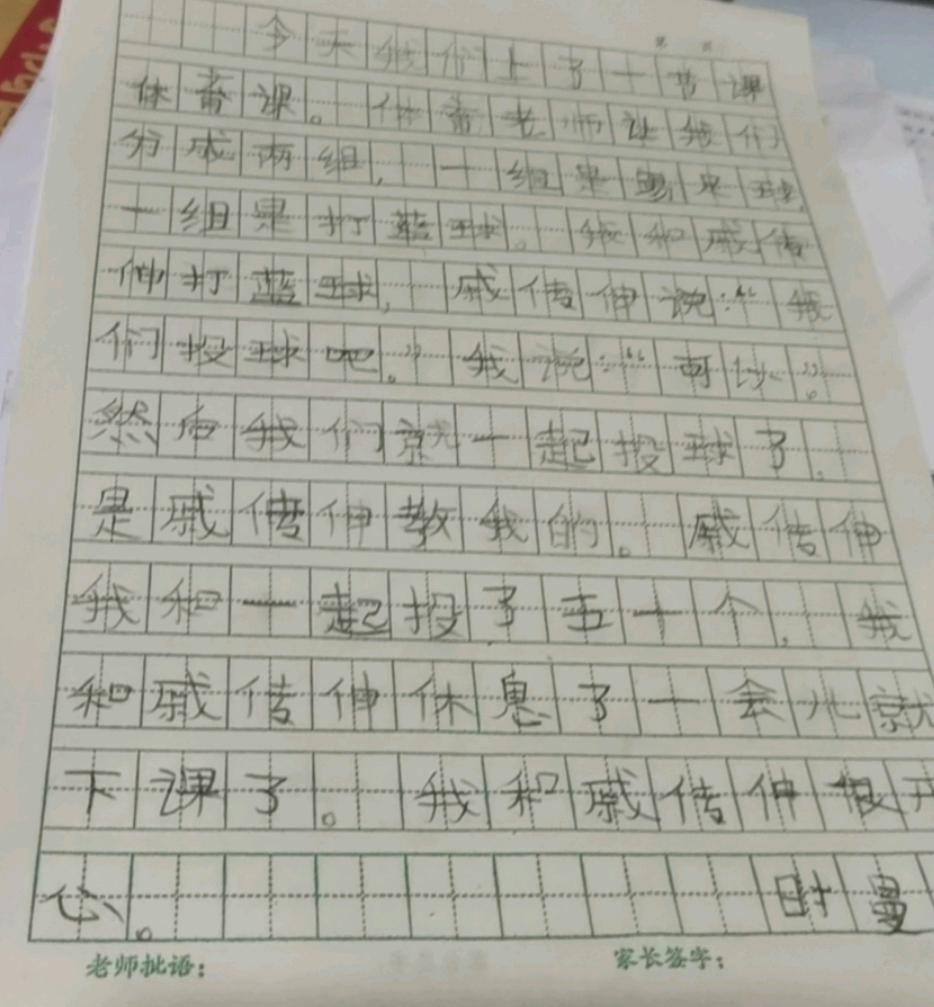 第 页
今天我们上了一节课
体育课。体育老师让我们
分成两组,一组是踢足球,
一组是打蓝球。我和戚传
伸打蓝球,戚传伸说:“我
们投球吧。”我说:“可以”。
然后我们就一起投球了,
是戚传伸教我的。戚传伸
我和一起投了五十个,我
和戚传伸休息了一会儿就
下课了。我和戚传伸很开
心。 时曼
老师批语: 家长签字: